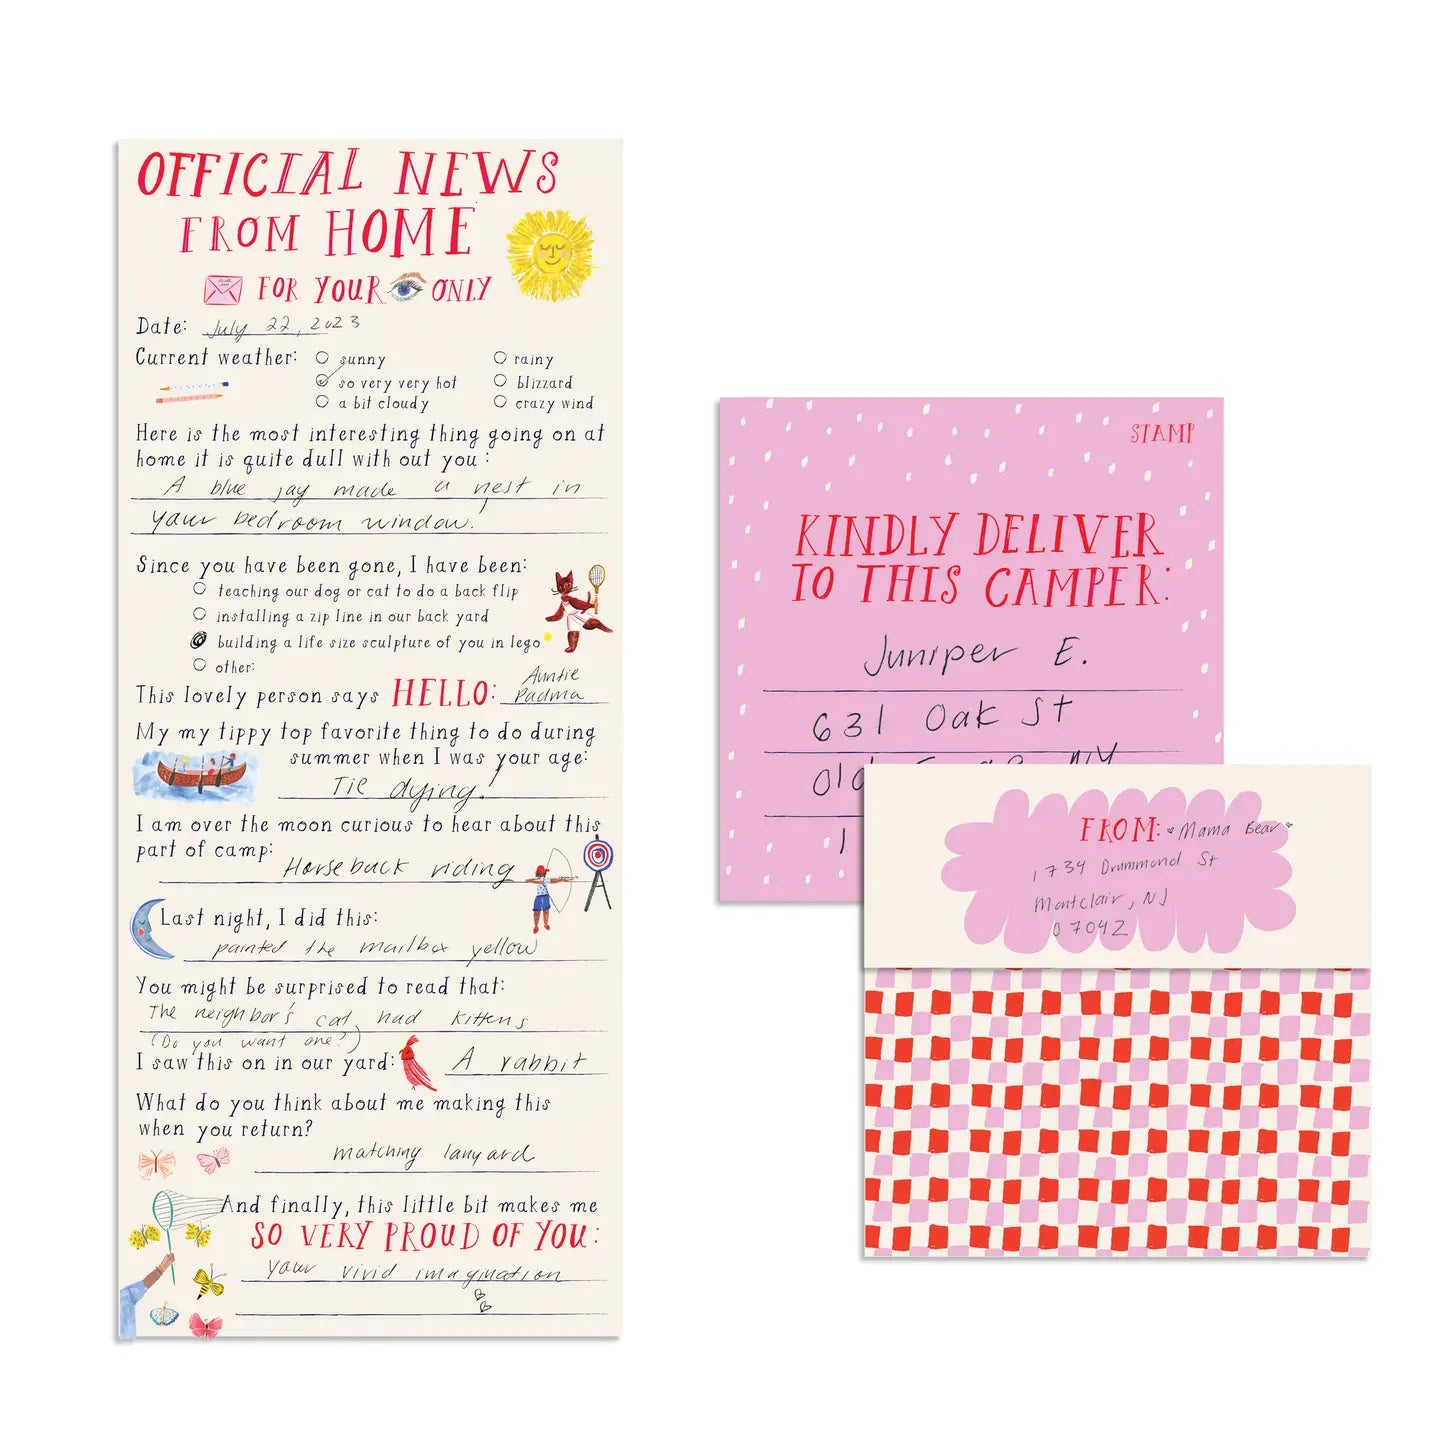 OFFICIAL NEWS
FROM HOME
FOR YOUR ONLY
Date: July 22, 2023
Current weather:
sunny
so very very hot
a bit cloudy
rainy
blizzard
crazy wind
Here is the most interesting thing going on at
home it is quite dull with out you :
A blue jay made a nest in
your bedroom window!
Since you have been gone, I have been:
teaching our dog or cat to do a back flip
installing a zip line in our back yard
building a life size sculpture of you in lego
other:
This lovely person says HELLO: Auntie
Padma
My my tippy top favorite thing to do during
summer when I was your age:
Tie dying!
I am over the moon curious to hear about this
part of camp:
Horseback riding
Last night, I did this:
painted the mailbox yellow
You might be surprised to read that:
The neighbor's cat had kittens
(Do you want one?)
I saw this on in our yard: A rabbit
What do you think about me making this
when you return?
matching lanyard
And finally, this little bit makes me
SO VERY PROUD OF YOU:
your vivid imagination
STAMP
KINDLY DELIVER
TO THIS CAMPER:
Juniper E.
631 Oak St
Old NY
1
FROM: Mama Bear
1734 Drummond St
Montclair, NJ
07042